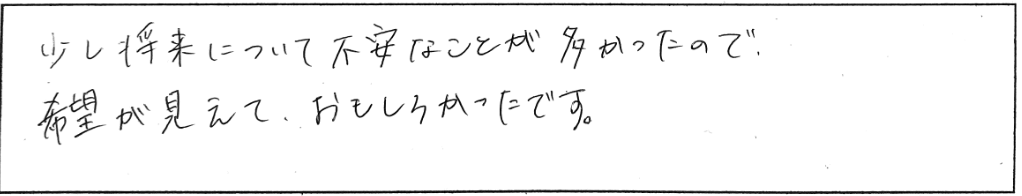 少し将来について不安なことが多かったので、
希望が見えて、おもしろかったです。